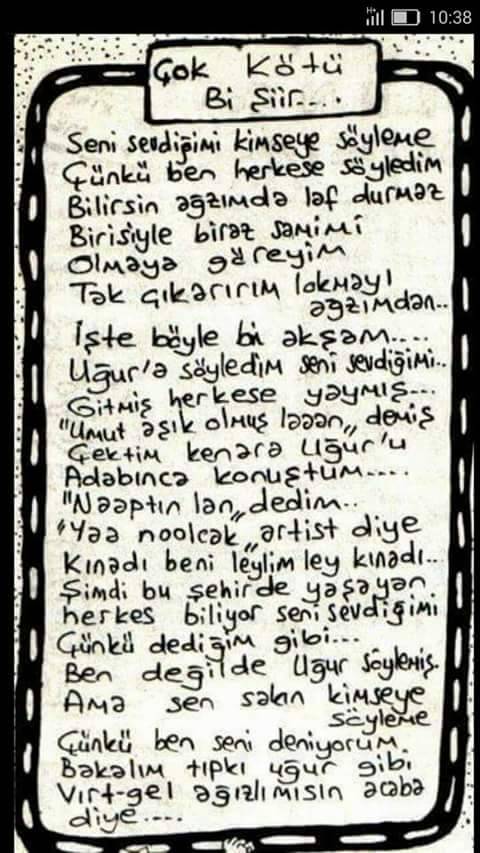 H+ 10:38
Çok Kötü
Bi Şiir....
Seni sevdiğimi kimseye söyleme
Çünkü ben herkese söyledim
Bilirsin ağzımda laf durmaz
Birisiyle biraz samimi
Olmaya göreyim
Tak çıkarırım lokmayı
ağzımdan..
İşte böyle bi akşam....
Uğur'a söyledim seni sevdiğimi..
Gitmiş herkese yaymış...
"Umut aşık olmuş laaan„ demiş
Çektim kenara Uğur'u
Adabınca konuştum....
"Naaptın lan„ dedim..
"Yaa noolcak„ artist diye
Kınadı beni leylim ley kınadı..
Şimdi bu şehirde yaşayan
herkes biliyor seni sevdiğimi
Çünkü dediğim gibi...
Ben değilde Uğur söylemiş.
Ama sen sakın kimseye
söyleme
Çünkü ben seni deniyorum.
Bakalım tıpkı uğur gibi
Vırt-gel ağızlımısın acaba
diye....